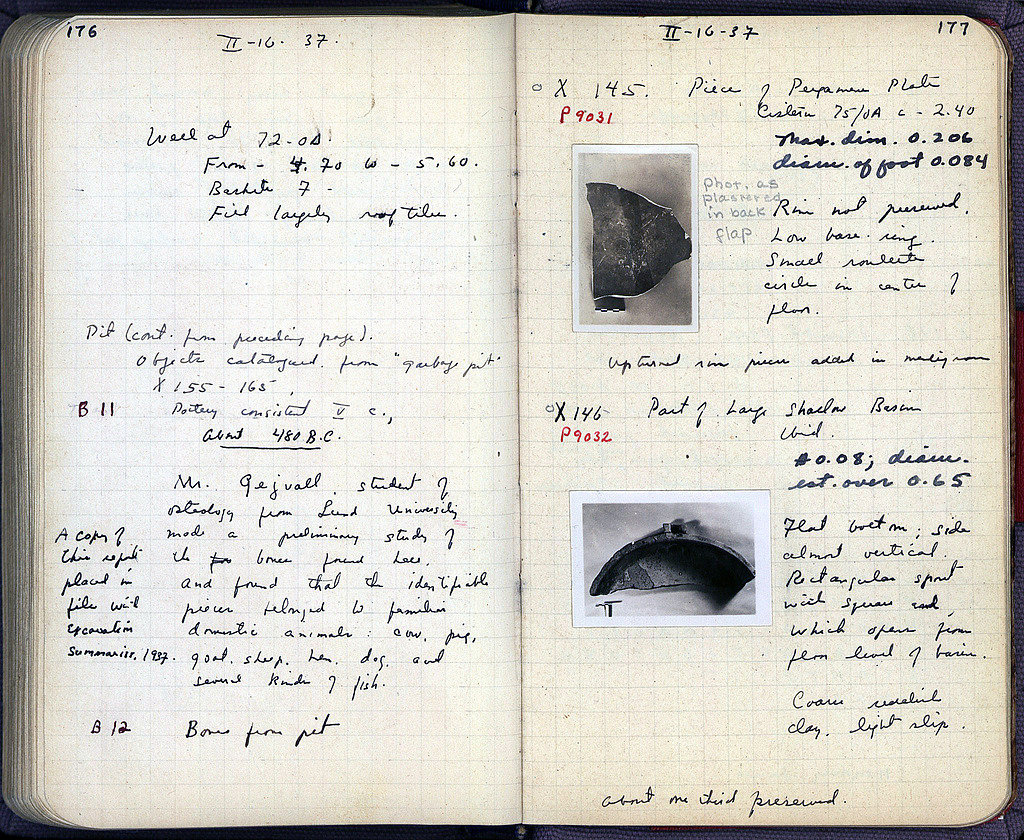 176
II-16-37.
Well at 72-OA.
From - 4.70 to - 5.60.
Baskets 7 -
Fill largely roof tiles.
Pit (cont. from preceding page).
Objects catalogued from "garbage pit"
X 155 - 165,
B 11 Pottery consistent V c.,
About 480 B.C.
Mr. Gejvall, student of
osteology from Lund University
made a preliminary study of
the bones found here,
and found that the identifiable
pieces belonged to familiar
domestic animals: cow, pig,
goat, sheep, hen, dog, and
several kinds of fish.
A copy of
this report
placed in
file with
Excavation
Summaries, 1937.
B 12 Bones from pit
177
II-16-37
X 145. Piece of Pergamene Plate
P 9031 Cistern 75/OA c - 2.40
Max. dim. 0.206
diam. of foot 0.084
Phot. as
plastered
in back
flap
Rim not preserved.
Low base ring.
Small roulette
circle in center of
floor.
Upturned rim pieces added in mending room
X 146 Part of Large Shallow Basin
P 9032 Ibid.
H 0.08; diam.
est. over 0.65
Flat bottom; side
almost vertical.
Rectangular spout
with square end,
which opens from
floor level of basin.
Coarse reddish
clay, light slip.
About one third preserved.